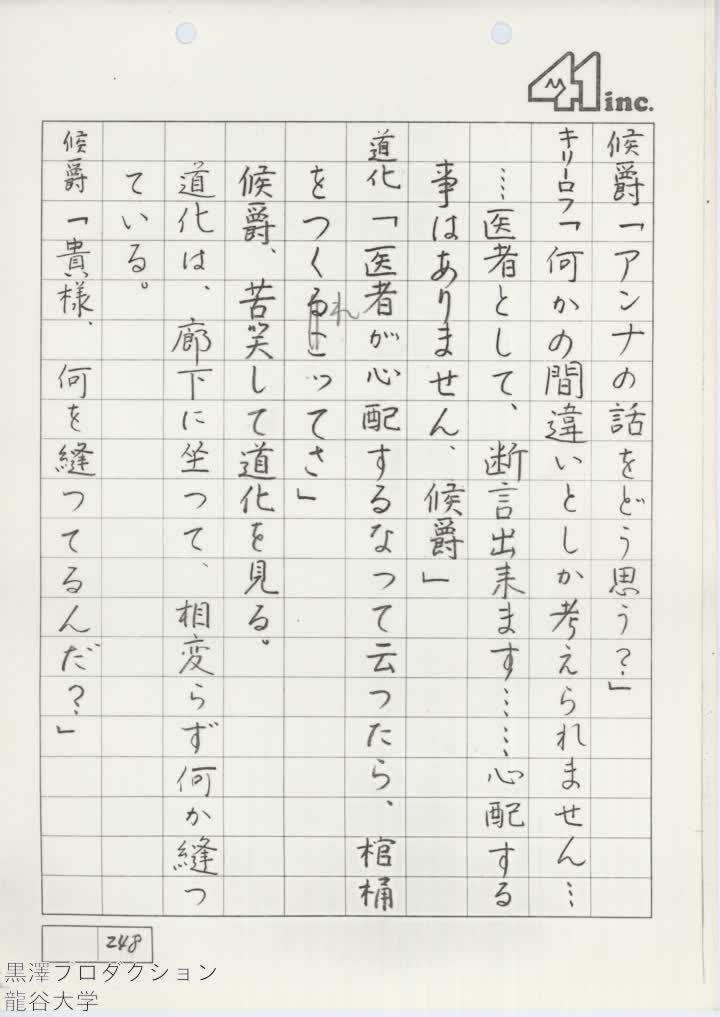 41 inc.
候爵「アンナの話をどう思う?」
キリーロフ「何かの間違いとしか考えられません…
…医者として、断言出来ます……心配する
事はありません、候爵」
道化「医者が心配するなって云ったら、棺桶
をつくれってさ」
候爵、苦笑して道化を見る。
道化は、廊下に坐って、相変らず何か縫っ
ている。
候爵「貴様、何を縫ってるんだ?」
248
黒澤プロダクション
龍谷大学